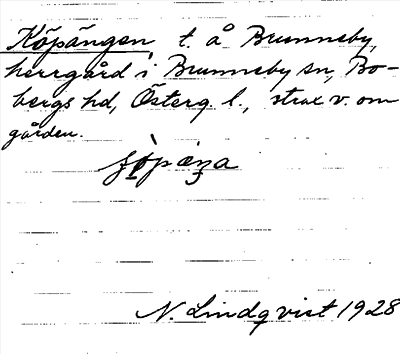 Köpängen t. å Brunneby,
herrgård i Brunneby sn, Bo-
bergs hd, Österg. l., strax v. om
gården.
N. Lindqvist 1928